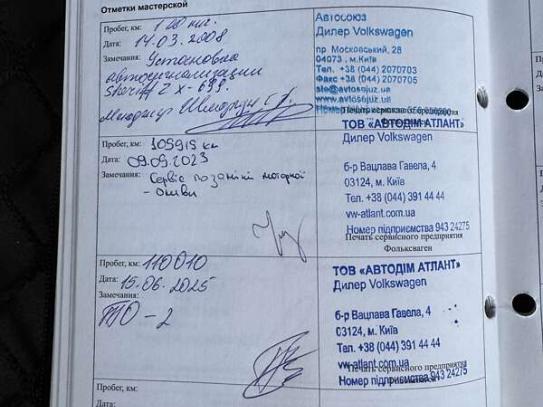 Отметки мастерской
Пробег, км:
Дата: 14.03.2008
Замечания: Установка
автосигнализации
Sheriff ZX-699.
Менеджер
Автосоюз
Дилер Volkswagen
пр Московський, 28
04073 . м.Київ
Тел. +38 (044) 2070703
Факс +38 (044) 2070705
ste@avtosojuz.ua
www.avtosojuz.ua
Печать сервисного предприятия
Пробег, км: 105919 км
Дата: 09.09.2023
Замечания: Сервіс по заміні моторної
- оливи
ТОВ «АВТОДІМ АТЛАНТ»
Дилер Volkswagen
б-р Вацлава Гавела, 4
03124, м. Київ
Тел. +38 (044) 391 44 44
vw-atlant.com.ua
Номер підприємства 943 24275
Печать сервисного предприятия
Фольксваген
Пробег, км: 110010
Дата: 15.06.2025
Замечания:
ТО-2
ТОВ «АВТОДІМ АТЛАНТ»
Дилер Volkswagen
б-р Вацлава Гавела, 4
03124, м. Київ
Тел. +38 (044) 391 44 44
vw-atlant.com.ua
Печать сервисного предприятия
Номер підприємства 943 24275
Пробег, км:
Дата: